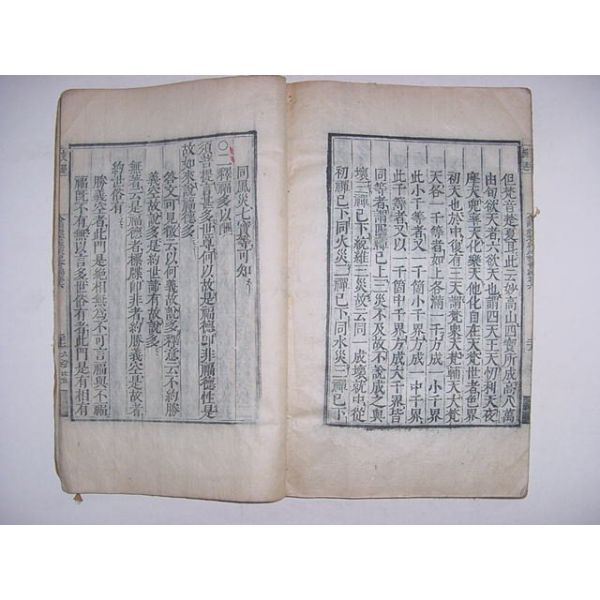 但梵音楚夏耳此云妙高山四寶所成高八萬
由旬欲天者六欲天也謂四天王天忉利天夜
摩天兜率天化樂天他化自在天梵世者色界
初天也於中復有三天謂梵衆天梵輔天大梵
天各一千等者如上各滿一千方成一小千界
此小千等者又以一千箇小千界方成一中千界
此千等者又以一千箇中千界方成大千界皆
同等者謂四禪已上三災不及故不說成之與
壞三禪已下統維三災故云同一成壞就中從
初禪已下同火災二禪已下同水災三禪已下
同風災七寶等可知
○二釋福多以徵
須菩提言甚多世尊何以故是福德即非福德性是
故如來說福德多
答文可見徵云以何義故說多釋意云不約勝
義空故說多是約世諦有故說多
無著云是福德者標牒即非者約勝義空是故者
約世俗有
勝義空者此門是絶相無爲不可言福與不福
福既不有無以言多世俗有者此門是有相有